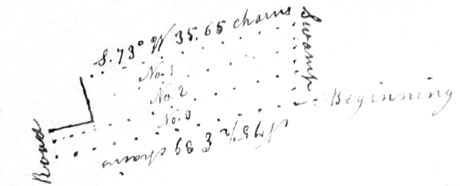 S. 73° W 35.65 chains
Swamp
No. 1
No. 2
No. 3
Beginning
N 75½ E 39 chains
Road